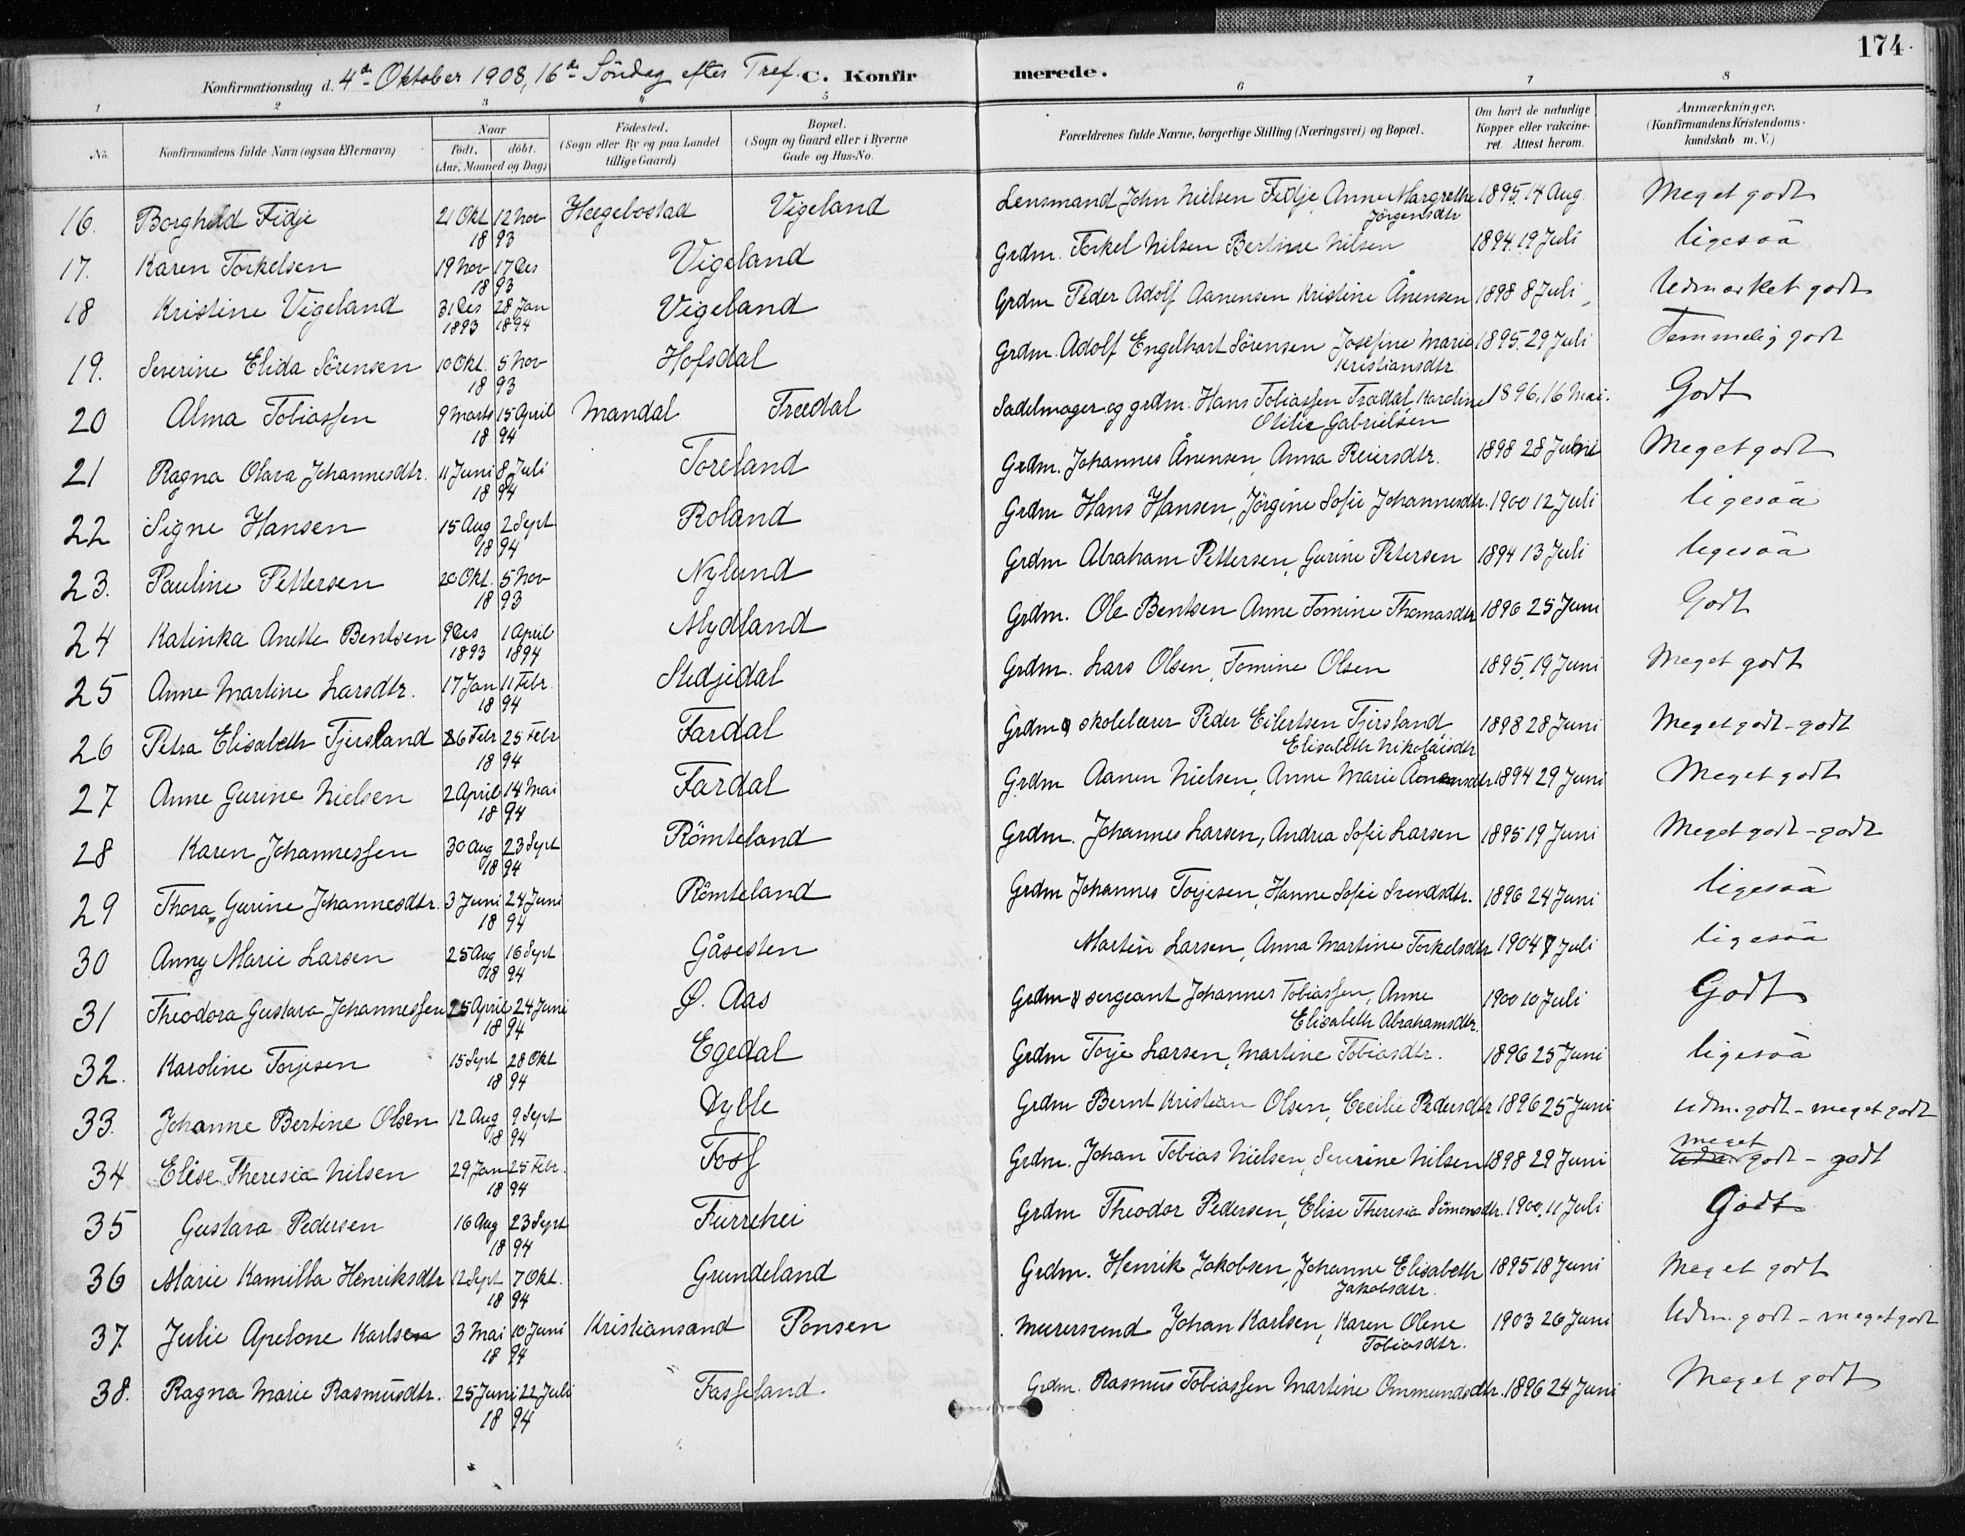 174.
Konfirmationsdag d. 4de Oktober 1908, 16de Söndag efter Tref. C. Konfirmerede.
1 2 3 4 5 6 7 8
No. Konfirmandens fulde Navn (ogsaa Efternavn) Naar Födt. döbt. (Aar, Maaned og Dag) Födested. (Sogn eller By og paa Landet tillige Gaard) Bopæl. (Sogn og Gaard eller i Byerne Gade og Hus-No. Forældrenes fulde Navne, borgerlige Stilling (Næringsvei) og Bopæl. Om havt de naturlige Kopper eller vakcineret. Attest herom. Anmærkninger. (Konfirmandens Kristendomskundskab m. V.)
16. Borghild Fidje 21 Okt 12 Nov 1893 Hægebostad Vigeland Lensmand John Nielsen Fidje, Anne Margrethe Jörgensdtr 1895. 14 Aug. Meget godt
17. Karen Torkelsen 19 Nov 17 Des 1893 Vigeland Grdm. Torkel Nilsen Bertine Nilsen 1894. 19 Juli ligesåa
18 Kristine Vigeland 31 Des 1893 28 Jan 1894 Vigeland Grdm Peder Adolf Aanensen Kristine Ånensen 1898 8 Juli Udmærket godt
19. Severine Elida Sörensen 10 Okt. 5 Nov 1893 Hofsdal Grdm. Adolf Engelhart Sörensen Josefine Marie Kristiansdtr. 1895. 29 Juli Temmelig godt
20 Alma Tobiassen 9 Marts 15 April 1894 Mandal Trædal Sadelmager og grdm. Hans Tobiassen Trædal Karoline Otilie Gabrielsen 1896. 16 Mai. Godt
21 Ragna Olava Johannesdtr. 11 Juni 8 Juli 1894 Toreland Grdm. Johannes Ånensen, Anna Reiersdtr. 1898 28 Juni Meget godt
22 Signe Hansen 15 Aug 2 Sept 1894 Roland Grdm Hans Hansen, Jörgine Sofie Johannesdtr. 1900 12 Juli ligesåa
23. Pauline Pettersen 20 Okt. 5 Nov 1893 Nylund Grdm Abraham Pettersen, Gurine Petersen 1894 13 Juli ligesåa
24 Katinka Anette Bentsen 9 Des 1893 1 April 1894 Mydland Grdm. Ole Bentsen Anne Tomine Thomasdtr 1896 25 Juni Godt
25 Anne Martine Larsdtr. 17 Jan 11 Febr. 1894 Stedjedal Grdm. Lars Olsen, Tomine Olsen 1895. 19 Juni Meget godt
26 Petra Elisabeth Tjersland 26 Febr 25 Febr 1894 Fardal Grdm & skolelærer Peder Eilertsen Tjersland Elisabeth Nikolaisdtr 1898 28 Juni Meget godt - godt
27 Anne Gurine Nielsen 2 April 14 Mai 1894 Fardal Grdm Aanen Nielsen, Anne Marie Ånensdtr 1894 29 Juni Meget godt
28 Karen Johannessen 30 Aug 23 Sept 1894 Römteland Grdm. Johannes Larsen, Andrea Sofie Larsen 1895 19 Juni Meget godt - godt
29 Thora Gurine Johannesdtr. 3 Juni 24 Juni 1894 Römteland Grdm Johannes Torjesen, Hanne Sofie Svendsdtr. 1896 24 Juni ligesåa
30 Anny Marie Larsen 25 Aug 16 Sept 1894 Gåsesten Martin Larsen, Anna Martine Torkelsdtr 1904 7 Juli ligesåa
31 Theodora Gustava Johannessen 25 April 24 Juni 1894 Ø. Aas Grdm & sergeant Johannes Tobiassen, Anne Elisabeth Abrahamsdtr. 1900 10 Juli Godt
32. Karoline Torjesen 15 Sept 28 Okt 1894 Egedal Grdm Torje Larsen, Martine Tobiasdtr. 1896 25 Juni ligesåa
33. Johanne Bertine Olsen 12 Aug 9 Sept 1894 Dyble Grdm Bernt Kristian Olsen, Cecilie Pedersdtr 1896 25 Juni Udm. godt - meget godt
34 Elise Theresia Nilsen 29 Jan 25 Febr. 1894 Foss Grdm. Johan Tobias Nielsen, Severine Nilsen 1898 29 Juni meget godt - godt
35 Gustava Pedersen 16 Aug 23 Sept 1894 Furrehei Grdm Theodor Pedersen, Elise Theresia Simonsdtr. 1900. 11 Juli Godt
36 Marie Kamilla Henriksdtr 12 Sept 7 Okt. 1894 Grundeland Grdm. Henrik Jakobsen, Johanne Elisabeth Jakobsdtr. 1895 18 Juni Meget godt
37. Julie Apelone Karlsen 3 Mai 10 Juni 1894 Kristiansand Ponsen Murersvend Johan Karlsen, Karen Olene Tobiasdtr. 1903 26 Juni Udm. godt - meget godt
38. Ragna Marie Rasmusdtr. 25 Juni 22 Juli 1894 Fasseland. Grdm. Rasmus Tobiassen Martine Ommundsdtr. 1896 24 Juni Meget godt